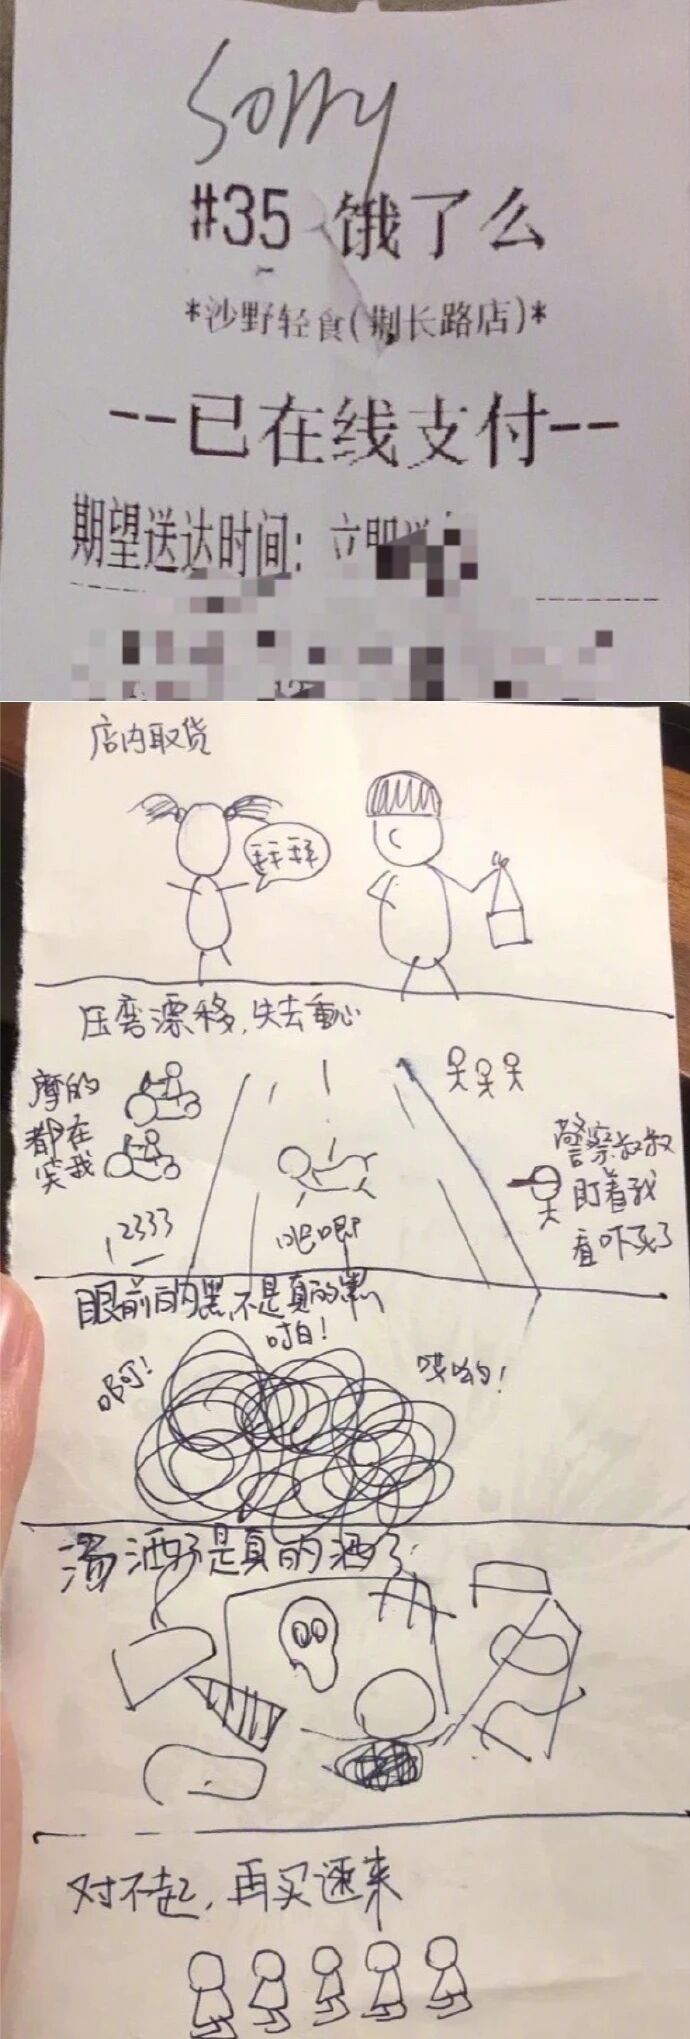 Sorry
#35 饿了么
*沙野轻食(荆长路店)*
--已在线支付--
期望送达时间：立即
店内取货
拜拜
压弯漂移,失去重心
摩的
都在
笑我
2333
吧唧
警察叔叔
盯着我
看吓死了
眼前的黑不是真的黑
啊!
哎哟!
汤洒了是真的洒了
对不起,再买速来